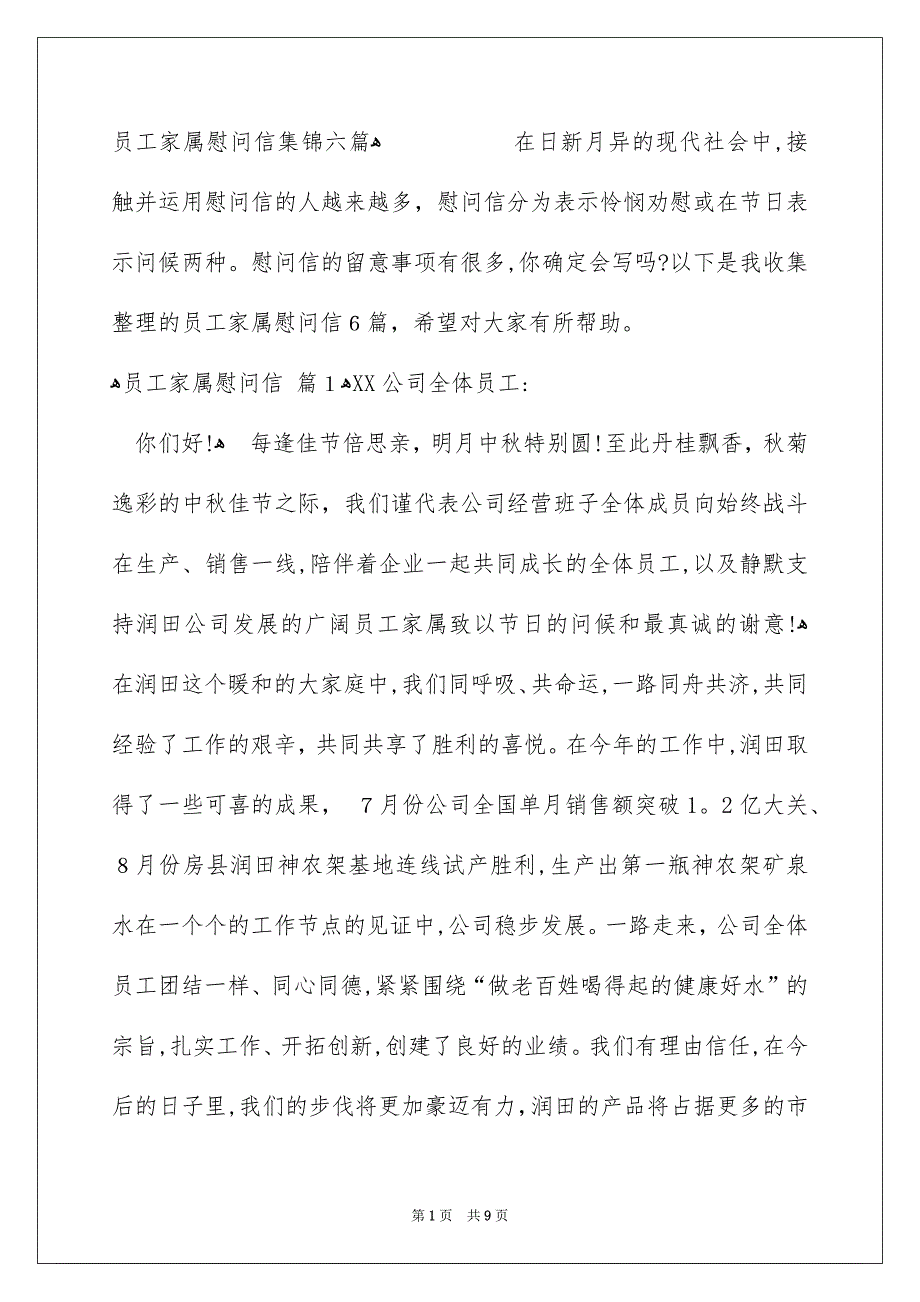 员工家属慰问信集锦六篇ﻫ 在日新月异的现代社会中,接
触并运用慰问信的人越来越多，慰问信分为表示怜悯劝慰或在节日表
示问候两种。慰问信的留意事项有很多,你确定会写吗?以下是我收集
整理的员工家属慰问信6篇，希望对大家有所帮助。
ﻫ员工家属慰问信 篇1ﻫXX公司全体员工:
你们好!ﻫ 每逢佳节倍思亲，明月中秋特别圆!至此丹桂飘香，秋菊
逸彩的中秋佳节之际，我们谨代表公司经营班子全体成员向始终战斗
在生产、销售一线,陪伴着企业一起共同成长的全体员工,以及静默支
持润田公司发展的广阔员工家属致以节日的问候和最真诚的谢意!ﻫ
在润田这个暖和的大家庭中,我们同呼吸、共命运,一路同舟共济,共同
经验了工作的艰辛，共同共享了胜利的喜悦。在今年的工作中,润田取
得了一些可喜的成果， 7月份公司全国单月销售额突破1。2亿大关、
8月份房县润田神农架基地连线试产胜利,生产出第一瓶神农架矿泉
水在一个个的工作节点的见证中,公司稳步发展。一路走来，公司全体
员工团结一样、同心同德,紧紧围绕“做老百姓喝得起的健康好水”的
宗旨,扎实工作、开拓创新,创建了良好的业绩。我们有理由信任,在今
后的日子里,我们的步伐将更加豪迈有力，润田的产品将占据更多的市
第1页 共9页